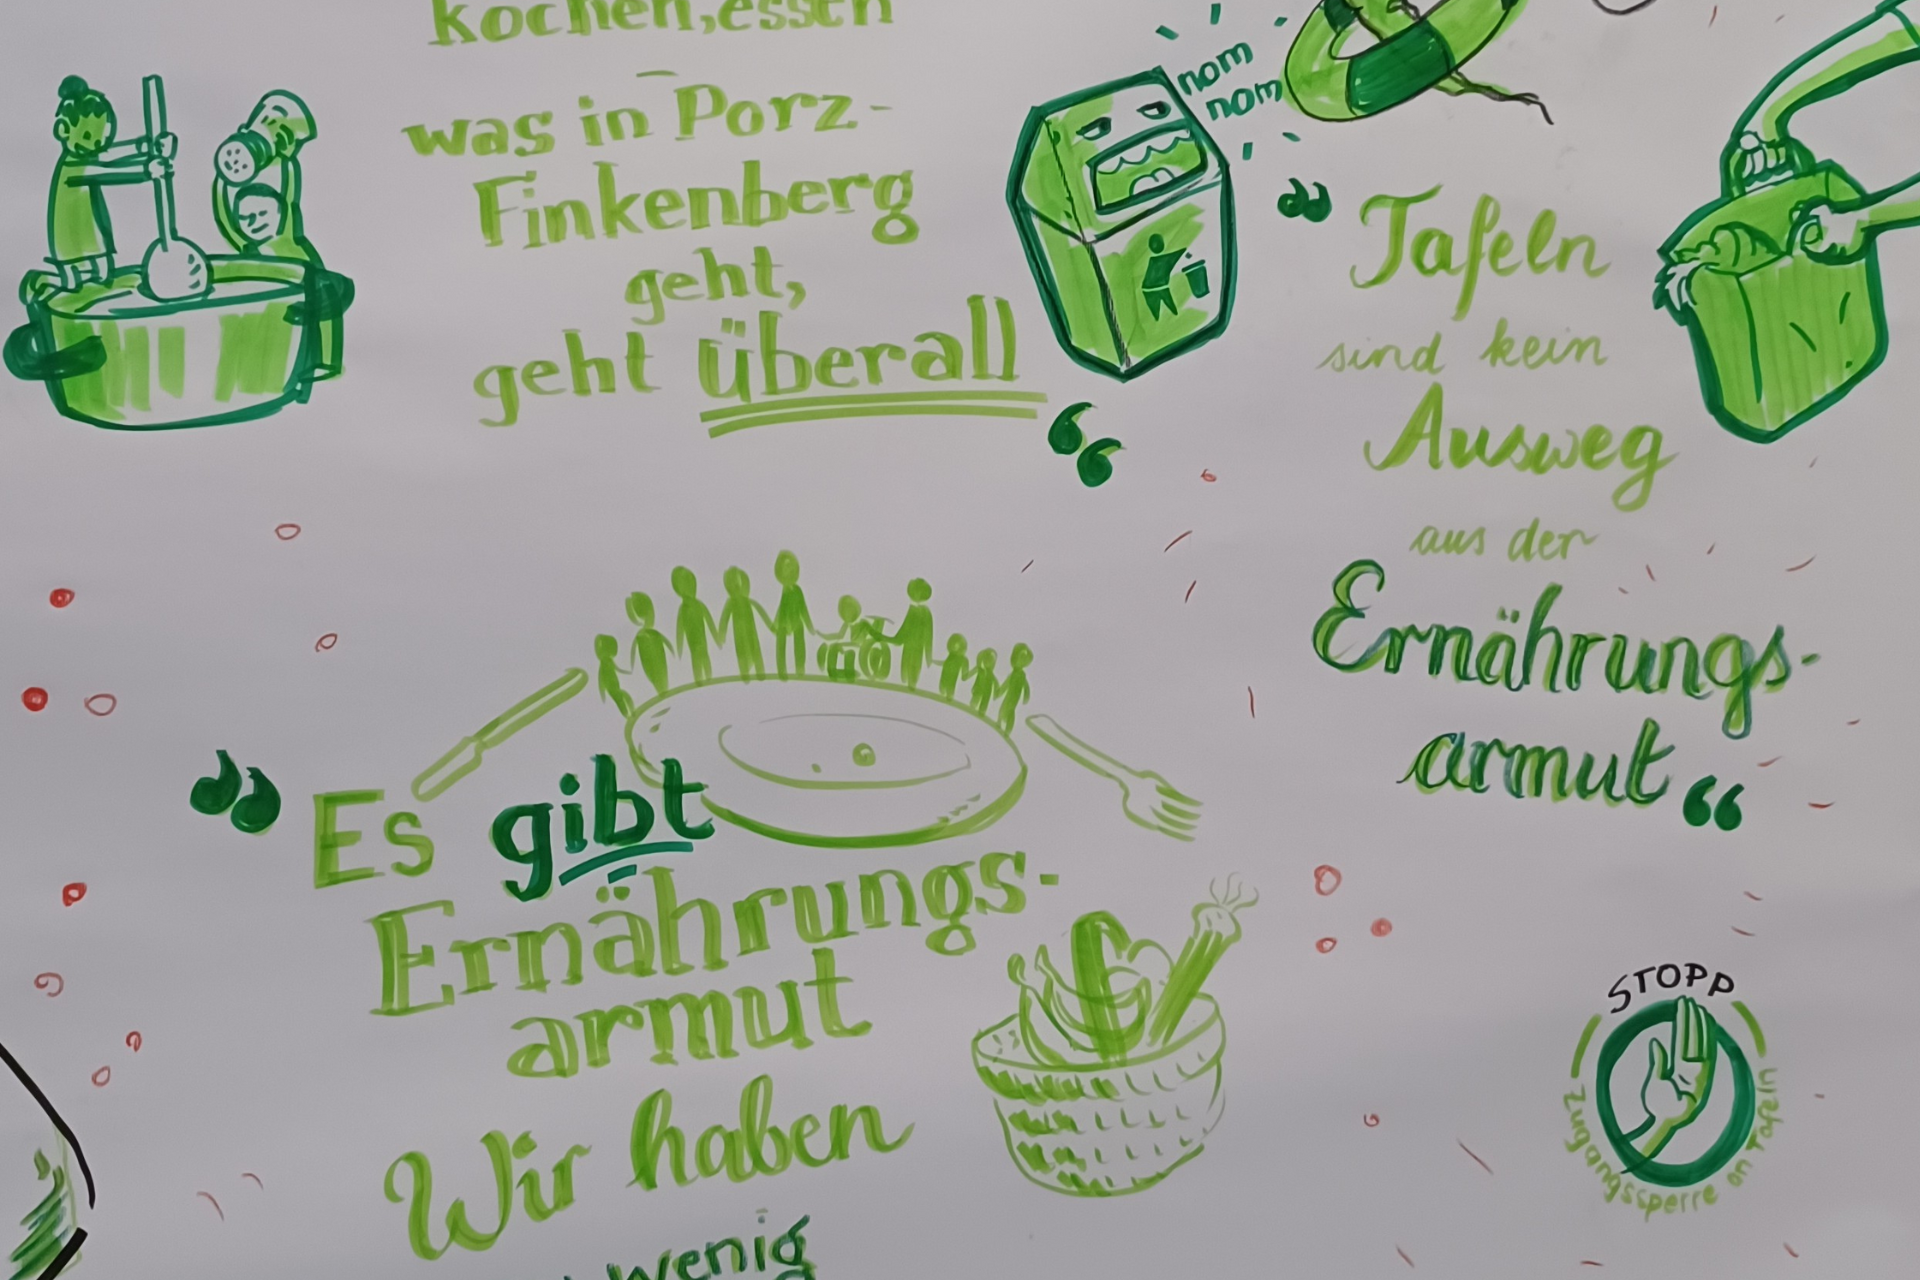 kochen, essen
was in Porz-
Finkenberg
geht,
geht überall“
nom
nom
„Tafeln
sind kein
Ausweg
aus der
Ernährungs-
armut“
„Es gibt
Ernährungs-
armut
Wir haben
wenig
STOPP
Zugangssperre an Tafeln